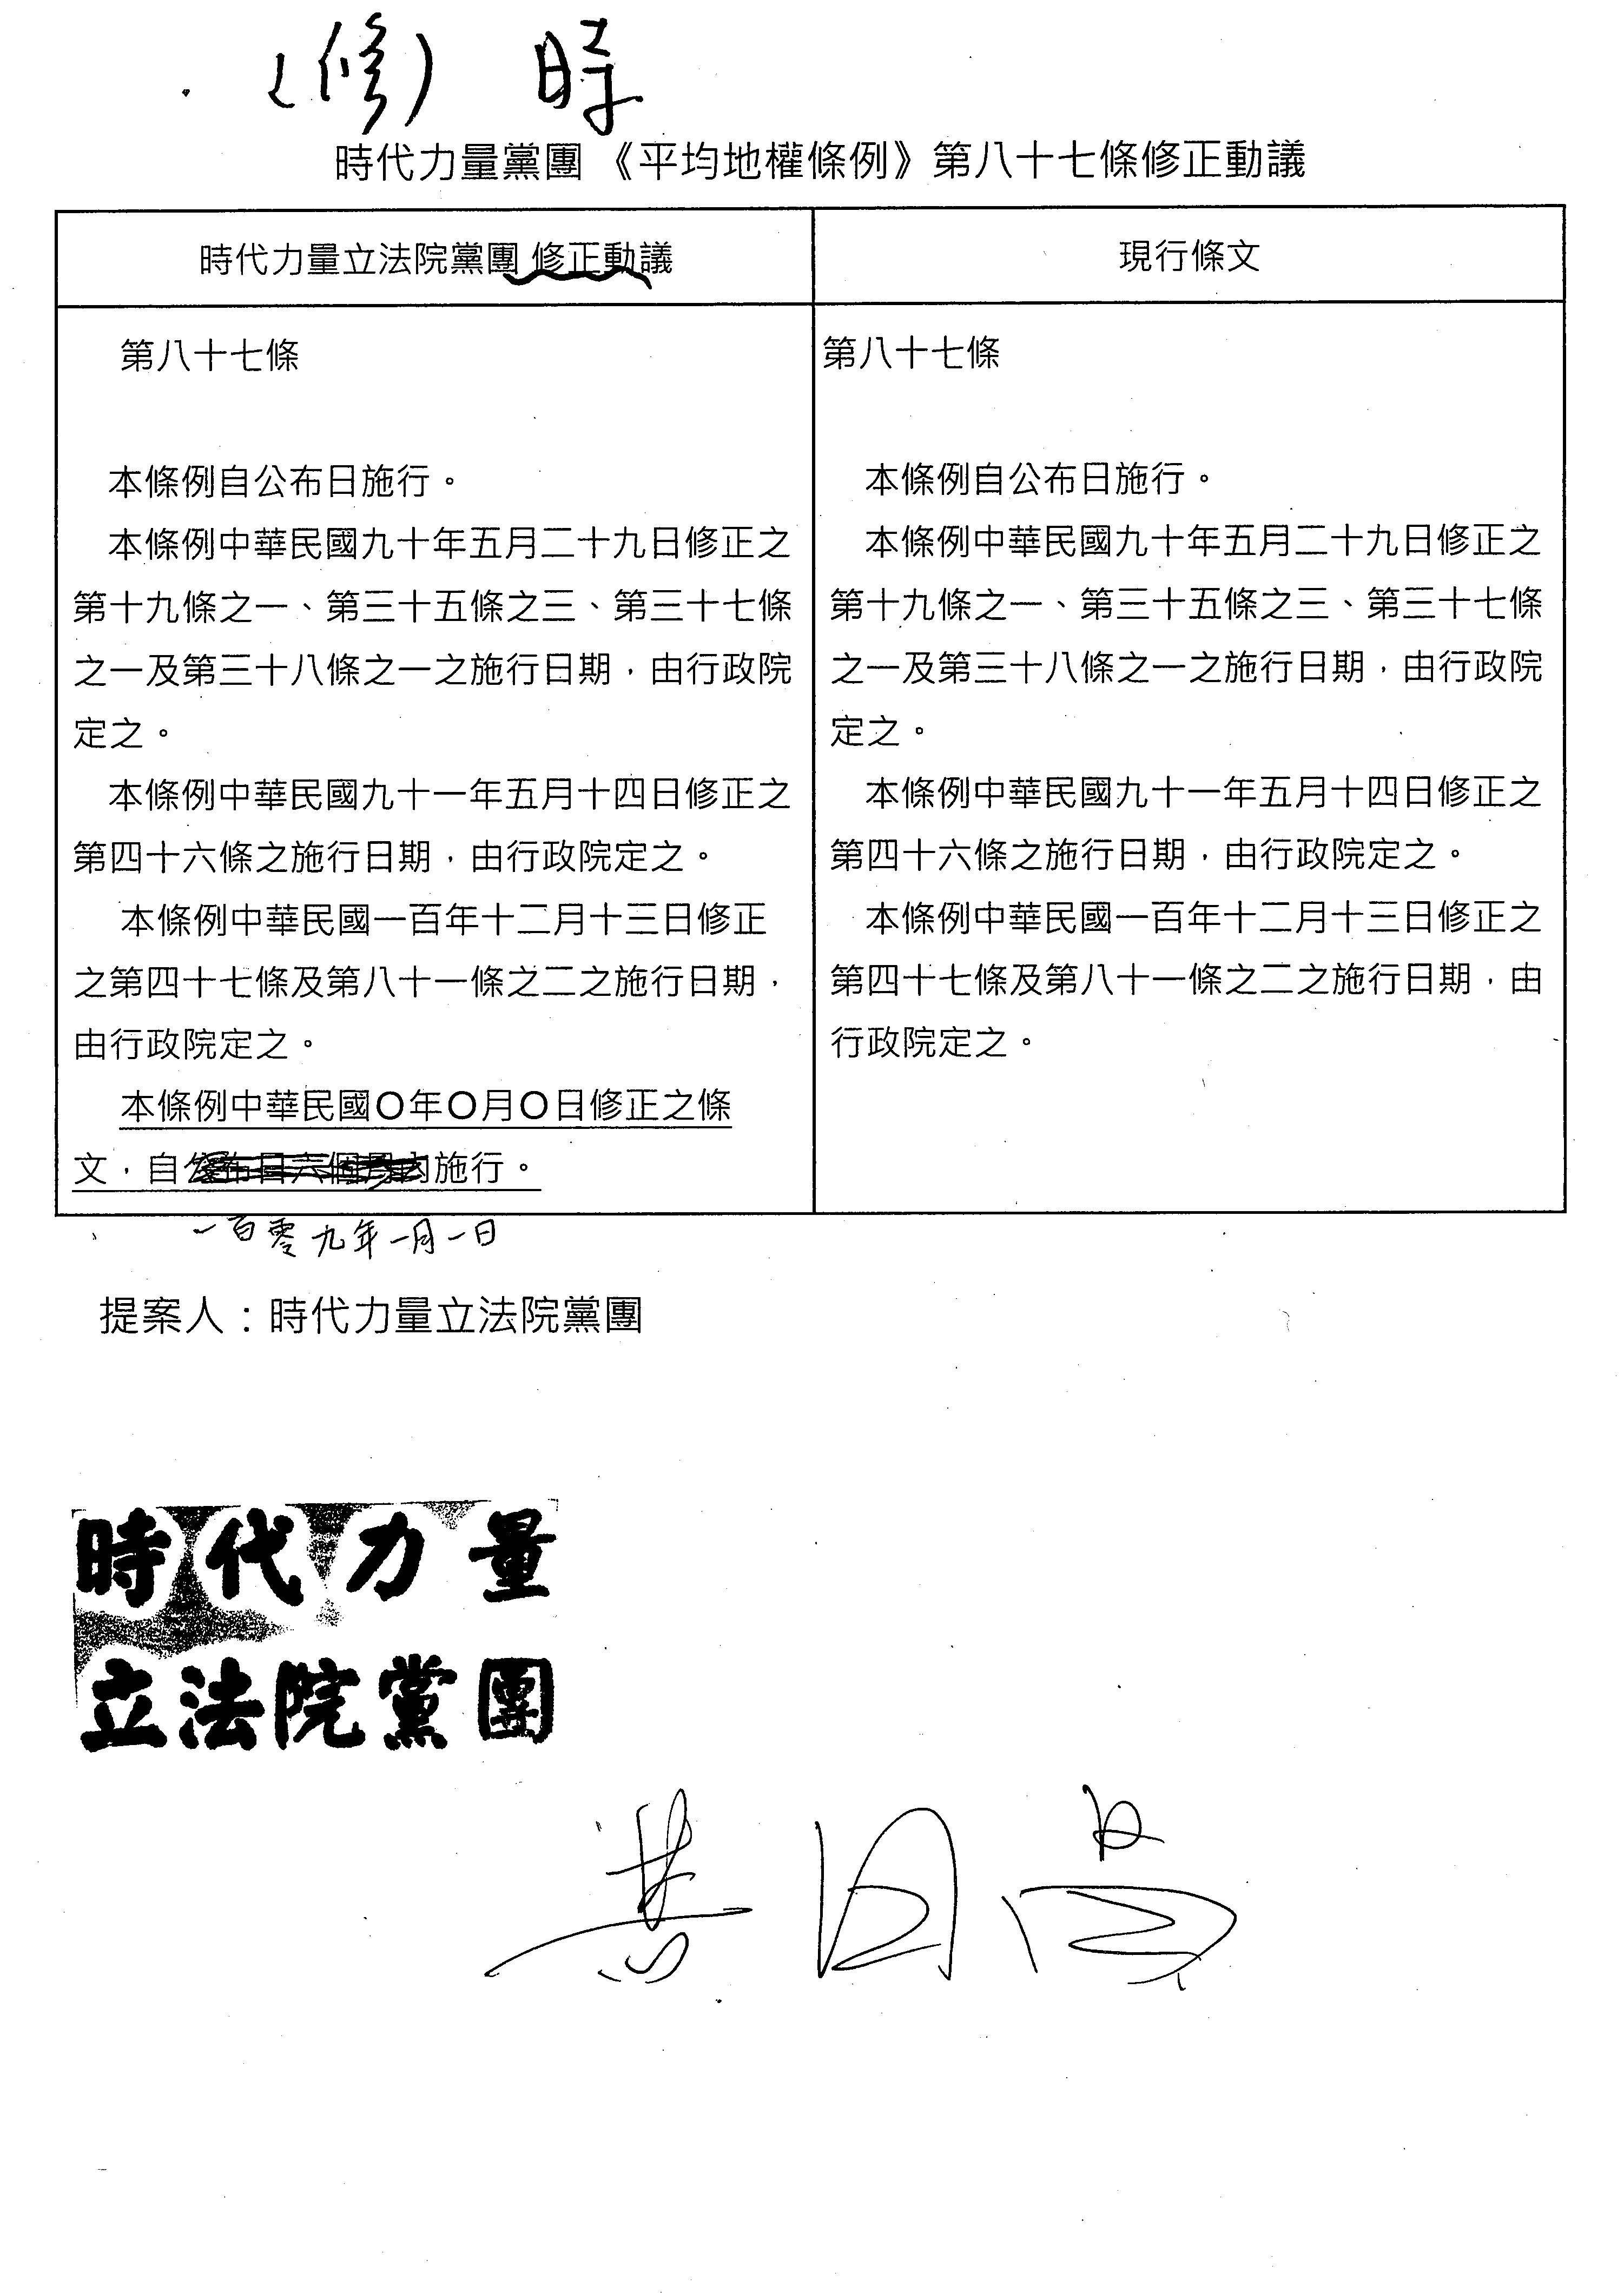 (修) 時
時代力量黨團 《平均地權條例》第八十七條修正動議
時代力量立法院黨團 修正動議
現行條文
第八十七條
本條例自公布日施行。
本條例中華民國九十年五月二十九日修正之
第十九條之一、第三十五條之三、第三十七條
之一及第三十八條之一之施行日期，由行政院
定之。
本條例中華民國九十一年五月十四日修正之
第四十六條之施行日期，由行政院定之。
本條例中華民國一百年十二月十三日修正
之第四十七條及第八十一條之二之施行日期，
由行政院定之。
本條例中華民國O年O月O日修正之條
文，自公布日六個月內施行。
一百零九年一月一日
第八十七條
本條例自公布日施行。
本條例中華民國九十年五月二十九日修正之
第十九條之一、第三十五條之三、第三十七條
之一及第三十八條之一之施行日期，由行政院
定之。
本條例中華民國九十一年五月十四日修正之
第四十六條之施行日期，由行政院定之。
本條例中華民國一百年十二月十三日修正之
第四十七條及第八十一條之二之施行日期，由
行政院定之。
提案人：時代力量立法院黨團
時代力量
立法院黨團